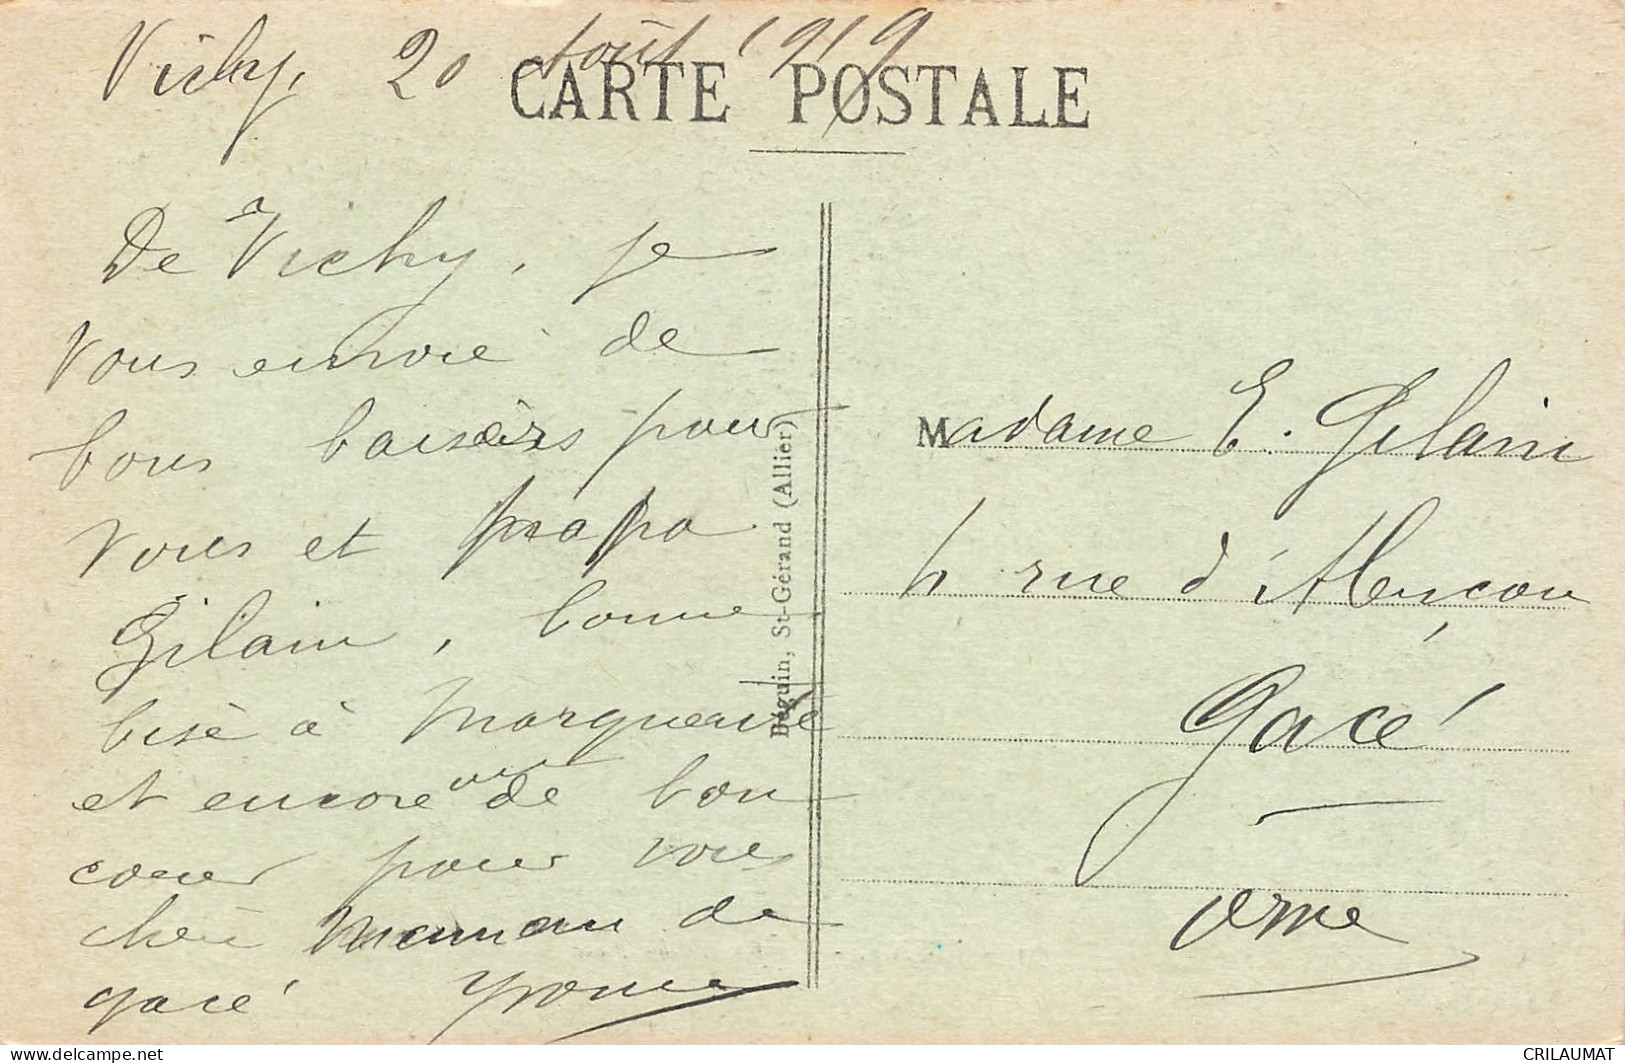 Vichy, 20 Août 1919
CARTE POSTALE
De Vichy, je
vous envoie de
bons baisers pour
vous et papa
Gilain, bonne
bise à Marguerite
et encore de bon
coeur pour vous
chère Maman de
Gacé Yvonne
Béguin, St-Gérand (Allier)
Madame E. Gilain
4 rue d'Alençon
Gacé
Orne
www.delcampe.net
CRILAUMAT